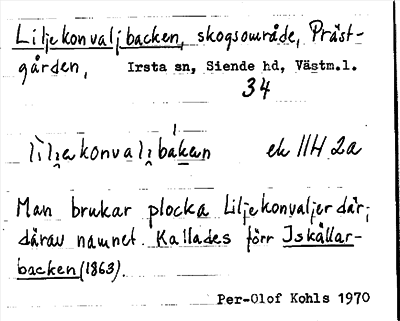 Liljekonvaljbacken, skogsområde, Präst-
gården, Irsta sn, Siende hd, Västm.l.
34
lìli̯ekonvali̯bákan ek 11H 2a
Man brukar plocka Liljekonvaljer där,
därav namnet. Kallades förr Iskällar-
backen (1863).
Per-Olof Kohls 1970